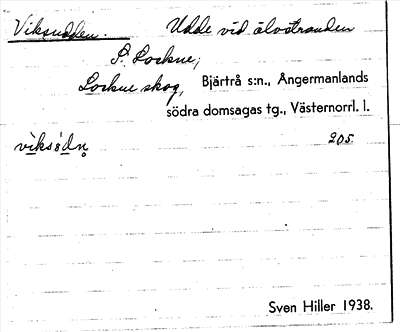 Viksudden. Udde vid älvstranden
S. Lockne,
Lockne skog, Bjärtrå s:n., Ångermanlands
södra domsagas tg., Västernorrl. l.
vìksùdn̥ 205.
Sven Hiller 1938.